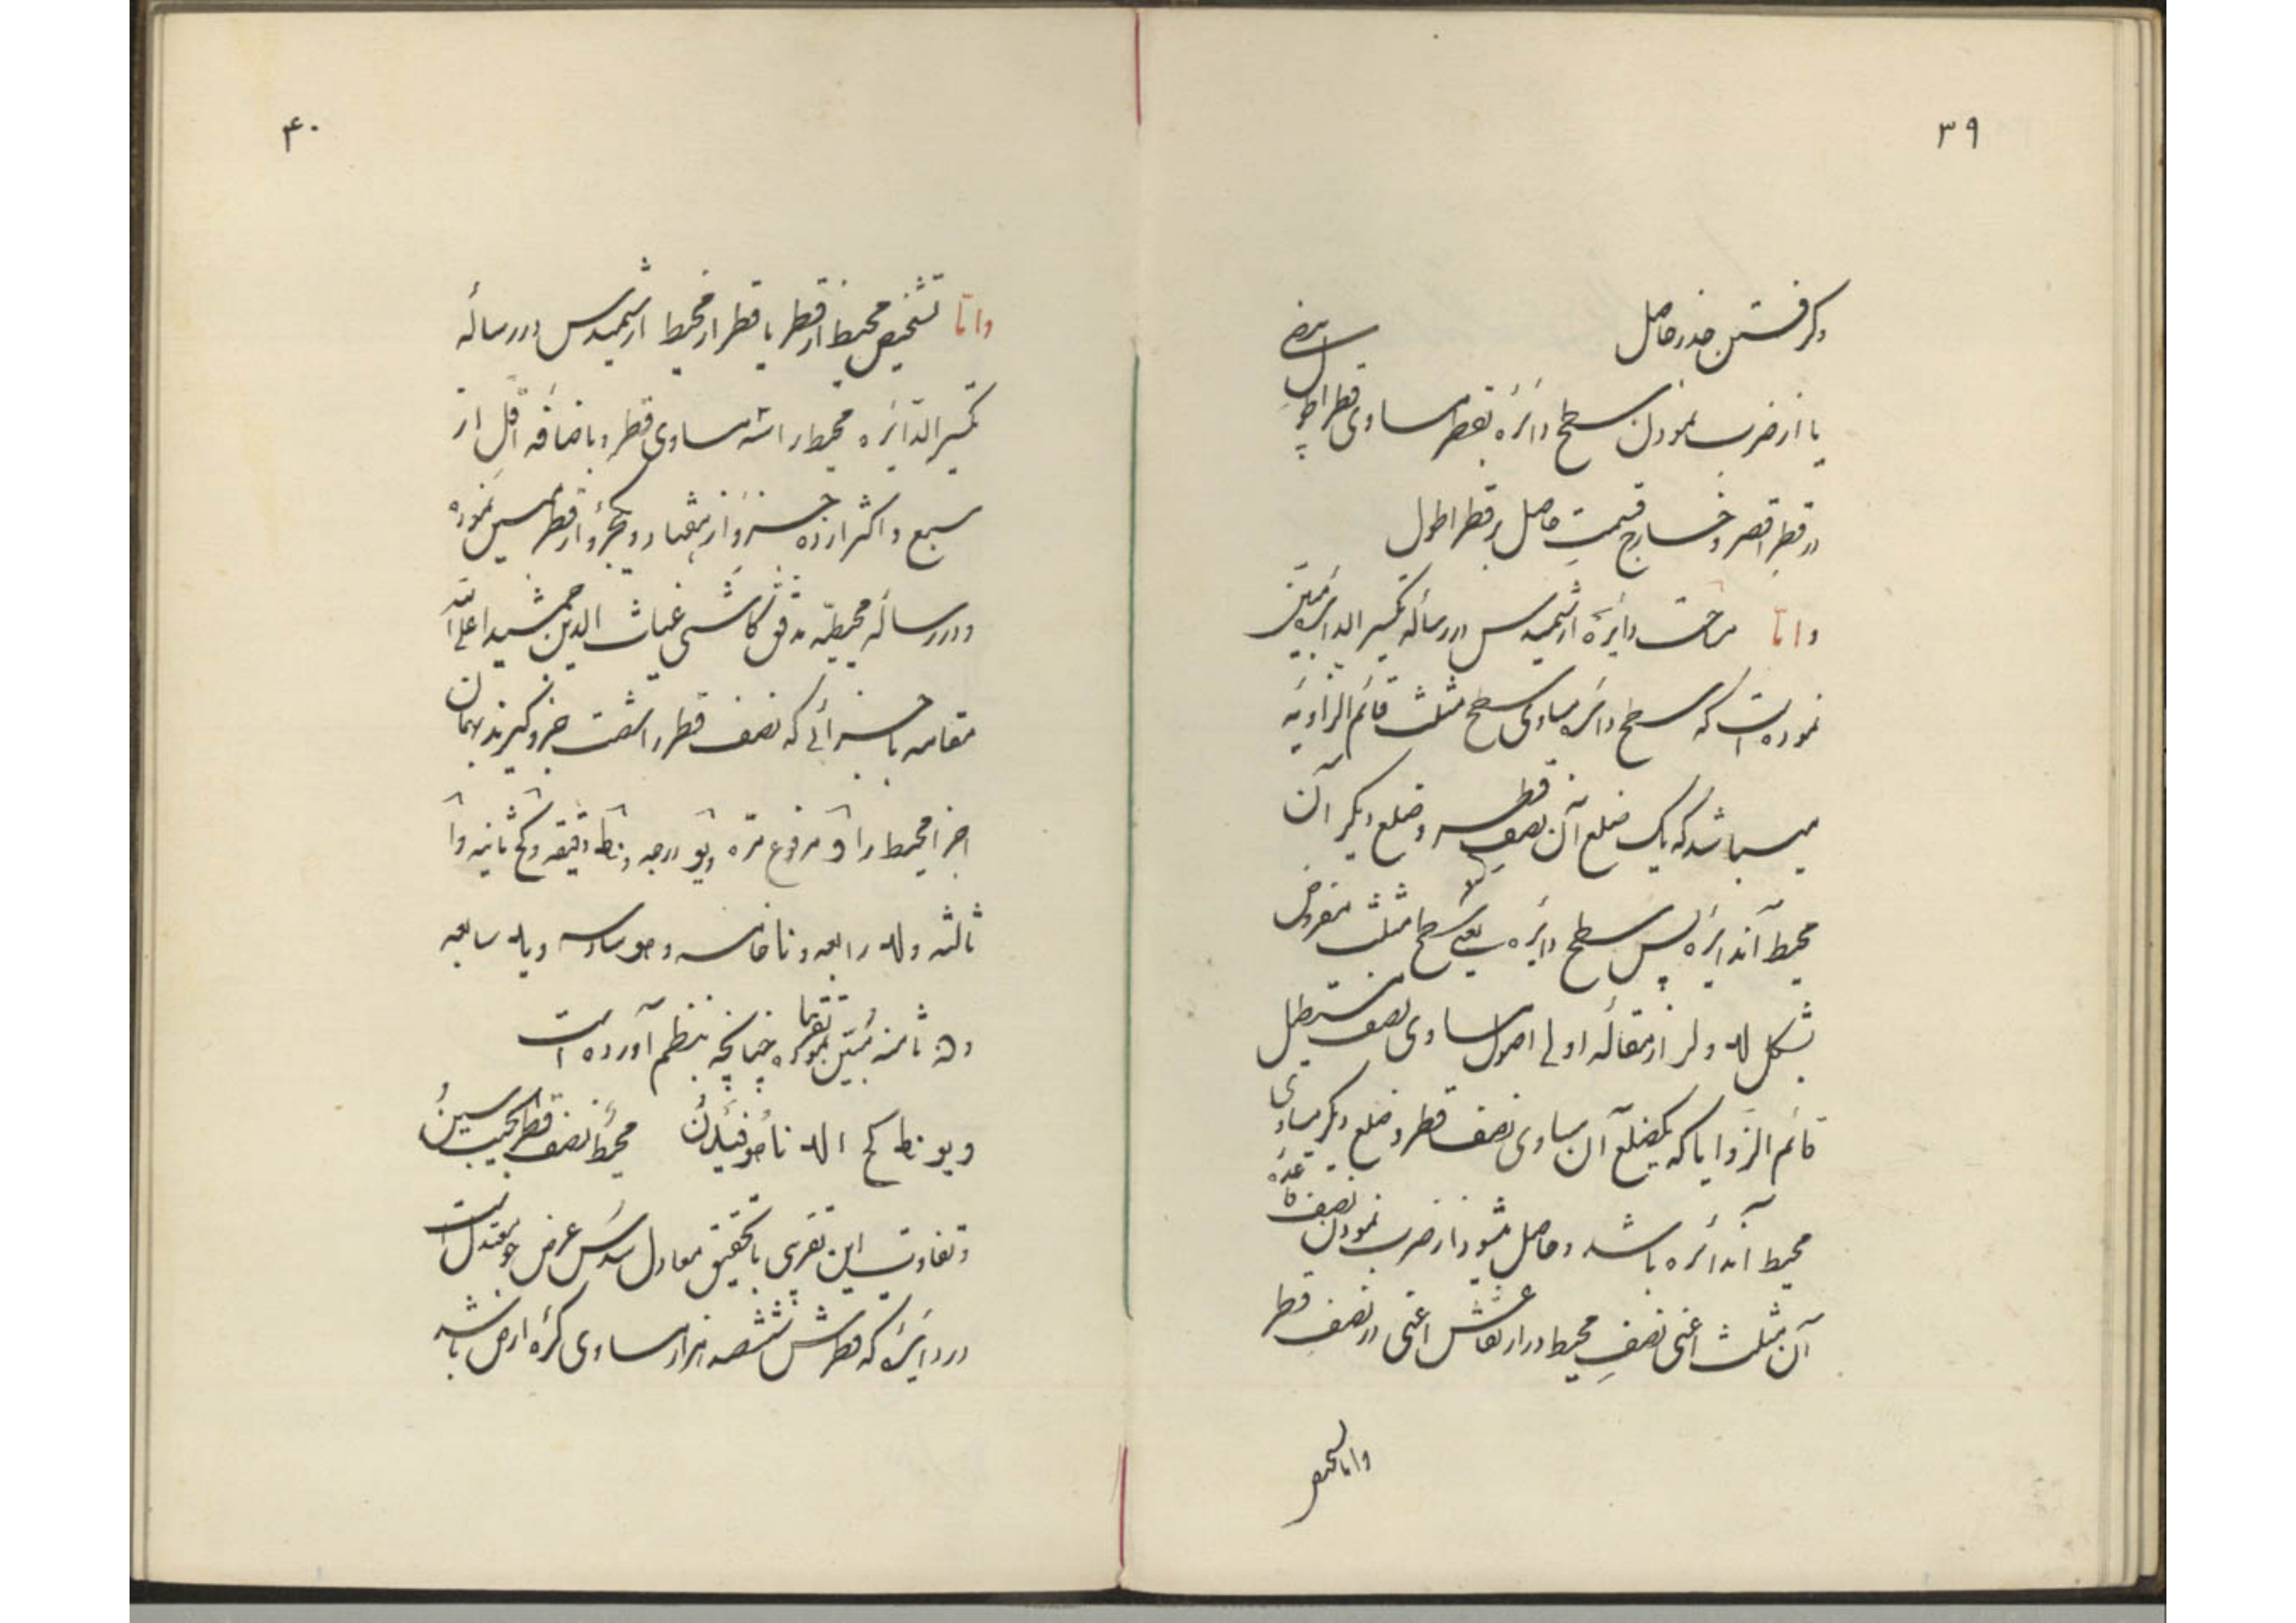 ۳۹
و گرفتن جذر حاصل
یا از ضرب نمودن سطح دائره بقطر مساوی قطر اطول
در قطر اقصر و خارج قسمت حاصل بر قطر اطول
و اما مساحت دائره ارشمیدس در رساله تکسیر الدائره مبین
نموده است که سطح دائره مساوی سطح مثلث قائم الزاویه
میباشد که یک ضلع آن نصف قطر و ضلع دیگر آن
محیط آندایره پس سطح دایره یعنی سطح مثلث مفروض
بشکل لد و لر از مقاله اولی اصول مساوی نصف مستطیل
قائم الزوایا که یکضلع آن مساوی نصف قطر و ضلع دیگر مساوی
محیط آندائره باشد و حاصل میشود از ضرب نمودن نصف قاعده
آن مثلث اعنی نصف محیط در ارتفاعش اعنی در نصف قطر
و اما تشخیص
۴۰
و اما تشخیص محیط از قطر یا قطر از محیط ارشمیدس در رساله
تکسیر الدائره محیط را سه مساوی قطر و باضافه اقل از
سبع و اکثر از ده جزو از هفتاد و یکجزو از قطر مبین نموده
و در رساله محیطیه مدقق کاشی غیاث الدین جمشید اعلی الله
مقامه باجزائی که نصف قطر را شصت جزو گیرند بهمان
اجزا محیط را و مرفوع مره و یو درجه و نط دقیقه و کح ثانیه و ا
ثالثه و لد رابعه و نا خامسه و مو سادسه و ید سابعه
و ن ثامنه مبین نموده تقریبا چنانچه بنظم آورده است
و یو نط کح ا لد نا مو ید ن محیط نصف قطر سین
و تفاوت این تقریب با تحقیق معادل سدس عرض جو معتدل است
در دائره که قطرش ششصد هزار مساوی کره ارض باشد